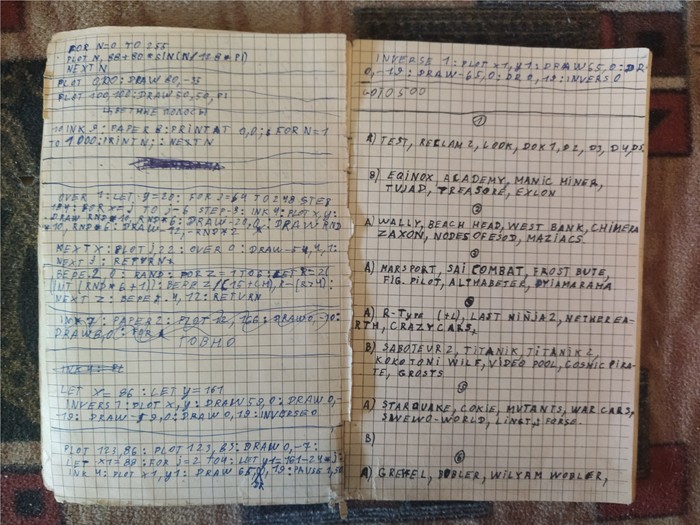 FOR N=0 TO 255
: PLOT N, 88+80*SIN(N/128*PI)
NEXT N
PLOT 0,100: DRAW 80,-35
PLOT 100,100: DRAW 50,50,
ЦВЕТНЫЕ ПОЛОСЫ
10 INK 9: PAPER 8: PRINT AT 0,0; : FOR N=1
TO 1000: PRINT N; : NEXT N
OVER 1: LET Y=20: FOR J=64 TO 248 STEP
184: FOR X=J TO J-6 STEP-3: INK 4: PLOT X,Y:
DRAW RND*10, RND*6: DRAW-24,0: DRAW RND
*10, RND*6: DRAW-12,-RND*2
NEXT X: PLOT J,22: OVER 0: DRAW
NEXT J: RETURN
BEPE.2,0: RAND: FOR Z=1 TO 6: LET R=2(
INT (RND*6+1)): BEPE
NEXT Z: BEPE 4,12: RETURN
INK 7: PAPER 2: PLOT 12,166: DRAW 0,-10:
DRAW 8,0: FOR
ГОВНО
INK
LET X=86: LET Y=161
INVERS 1: PLOT X,Y: DRAW 59,0: DRAW 0,-
-19: DRAW-59,0: DRAW 0,19: INVERSE 0
PLOT 123,86: PLOT 123,83: DRAW 0,-7:
LET X1=88: FOR J=2 TO 4: LET Y1=161-24*J:
INK 4: PLOT X1,Y1: DRAW 65,0, 19: PAUSE 1,
INVERSE 1: PLOT X1,Y1: DRAW 65,0: DR-
0,-19: DRAW-65,0: DR 0,19: INVERS 0
GOTO 500
1
A) TEST, REKLAM 2, LOOK, DOK 1, D2, D3, D4, D5
B) EQINOX, ACADEMY, MANIC MINER,
TUJAD, TREASORE, EXLON
2
A) WALLY, BEACH HEAD, WEST BANK, CHIMERA
ZAXON, NODES OF ESOD, MAZIACS.
3
A) MARSPORT, SAI COMBAT, FROST BUTE,
FIG. PILOT, ALTHABETER, DYIAMARAMA
4
A) R-Type (+L), LAST NINJA 2, NETHEREA-
RTH, CRAZY CARS,
B) SABOTEUR 2, TITANIK, TITANIK 2,
KOKOTONI WILF, VIDEO POOL, COSMIC PIRA-
TE, GROSTS
5
A) STARQUAKE, COKIE, MUTANTS, WAR CARS,
SWEWO-WORLD, LINGT, FORSE.
B)
6
A) GREGEL, BOBLER, WILYAM WOBLER,